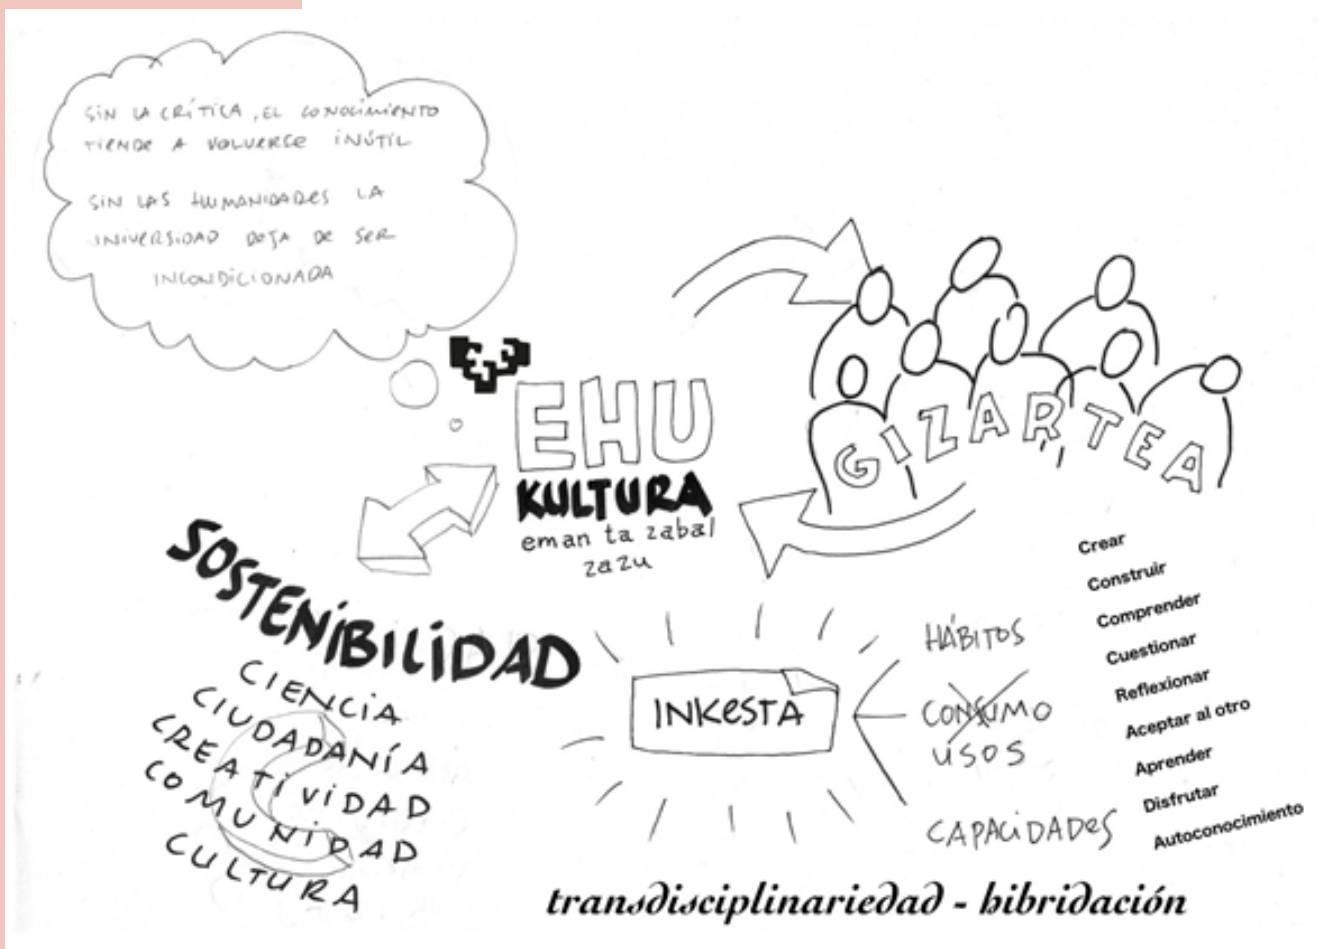 SIN LA CRÍTICA, EL CONOCIMIENTO
TIENDE A VOLVERSE INÚTIL
SIN LAS HUMANIDADES LA
UNIVERSIDAD DEJA DE SER
INCONDICIONADA
EHU
KULTURA
eman ta zabal
zazu
GIZARTEA
SOSTENIBILIDAD
CIENCIA
CIUDADANÍA
CREATIVIDAD
COMUNIDAD
CULTURA
C
INKESTA
HÁBITOS
CONSUMO
USOS
CAPACIDADES
Crear
Construir
Comprender
Cuestionar
Reflexionar
Aceptar al otro
Aprender
Disfrutar
Autoconocimiento
transdisciplinariedad - hibridación